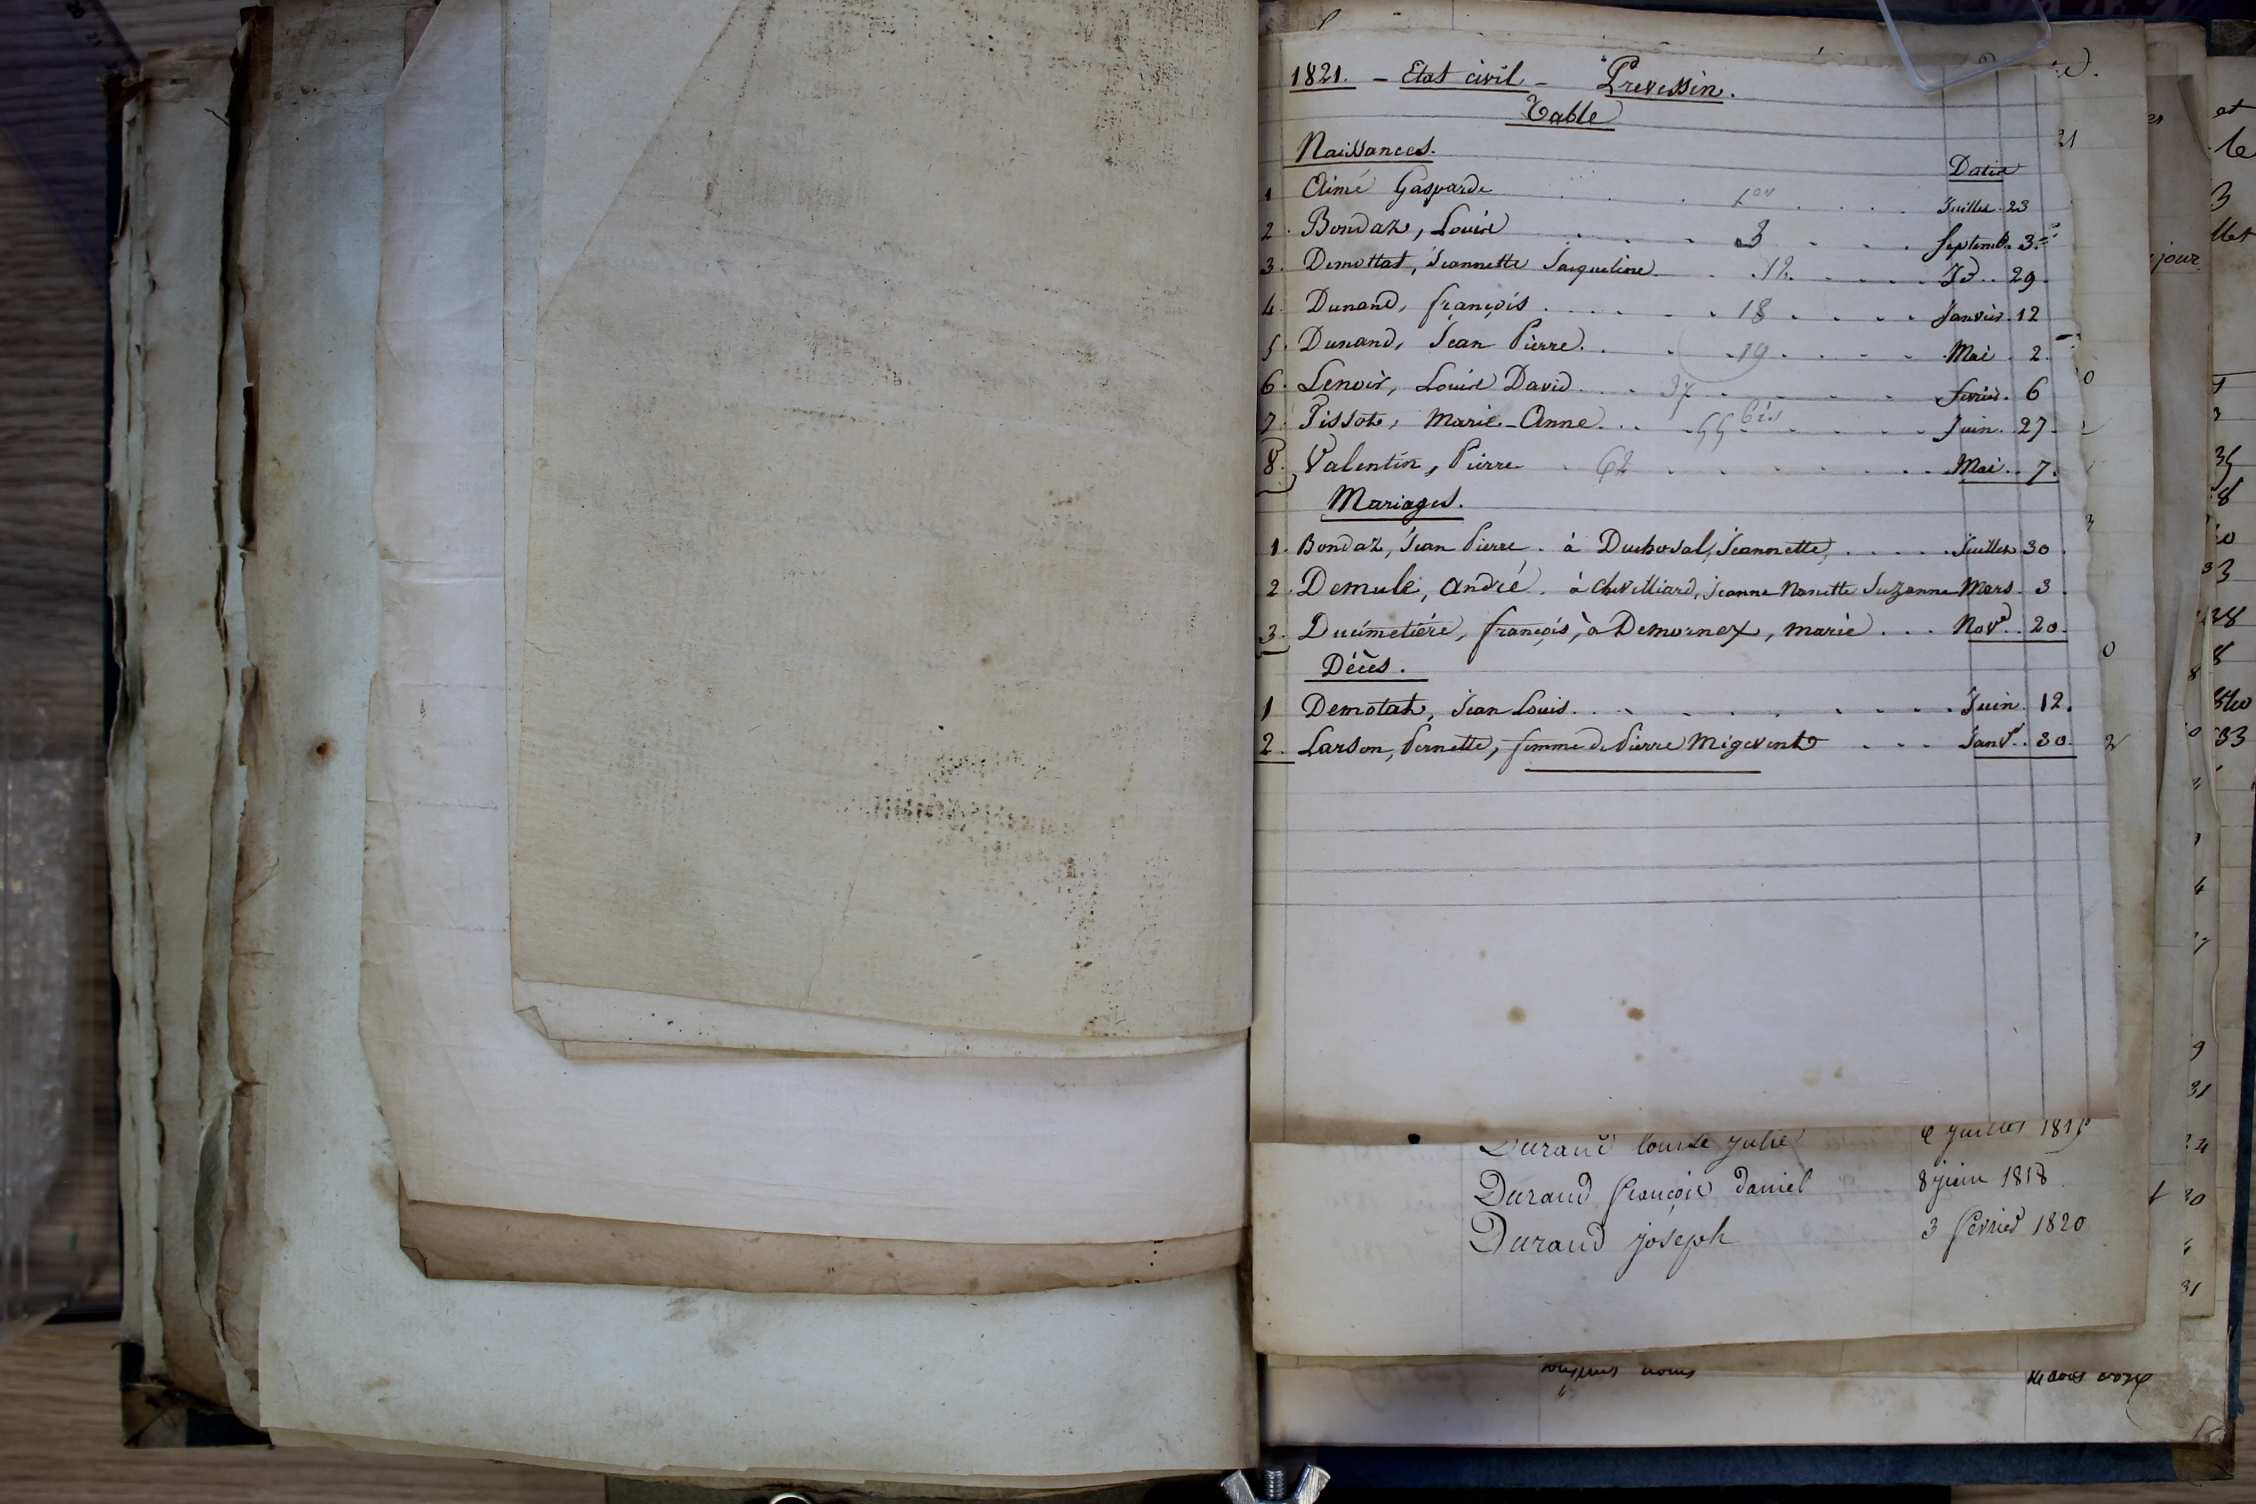 1821. - Etat civil - Prevessin.
Table
Naissances.
Dates
1 Aimé Gasparde . . . 1er . . . Juillet. 23
2. Bondaz, Louise . . . 3 . . . Septemb. 3.
3. Demottat, Jeannette Jacqueline . . 12. . . . Id. . 29.
4. Dunand, françois . . . . . 18 . . . . Janvier. 12
5. Dunand, Jean Pierre. . . . 19 . . . . Mai . 2.
6. Lenoir, Louise David . . 37 . . . . fevrier. 6
7. Tissot, Marie-Anne. . . 55 bis . . . . Juin. 27.
8. Valentin, Pierre . 62 . . . . . . Mai . . 7.
Mariages.
1. Bondaz, Jean Pierre . à Duchosal, Jeannette, . . . . . Juillet 30.
2. Demule, André . à Chevilliard, Jeanne Nanette Suzanne Mars. 3.
3. Ducimetiére, françois, à Demornex, marie . . . Nov. . 20.
Décès.
1 Demotat, Jean Louis. . . . . . . . . Juin. 12.
2. Larson, Pernette, femme de Pierre Mégevent . . . Janvr. . 30.
Durand louise julie
Durand françois daniel 8 juin 1818
Durand joseph 3 fevrier 1820